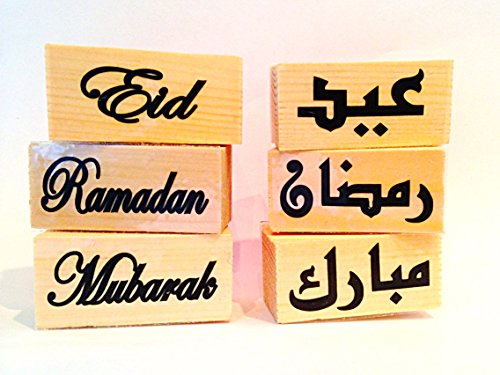 Eid
Ramadan
Mubarak
عيد
رمضان
مبارك